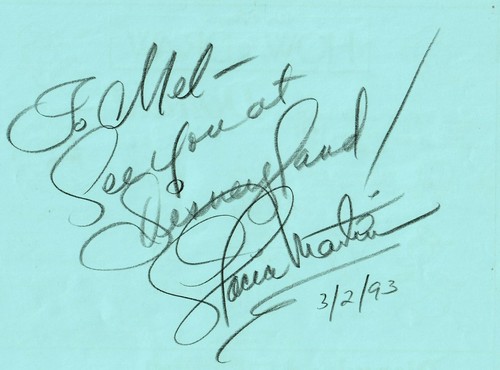 To Mel-
See you at
Disneyland!
Stacia Martin
3/2/93